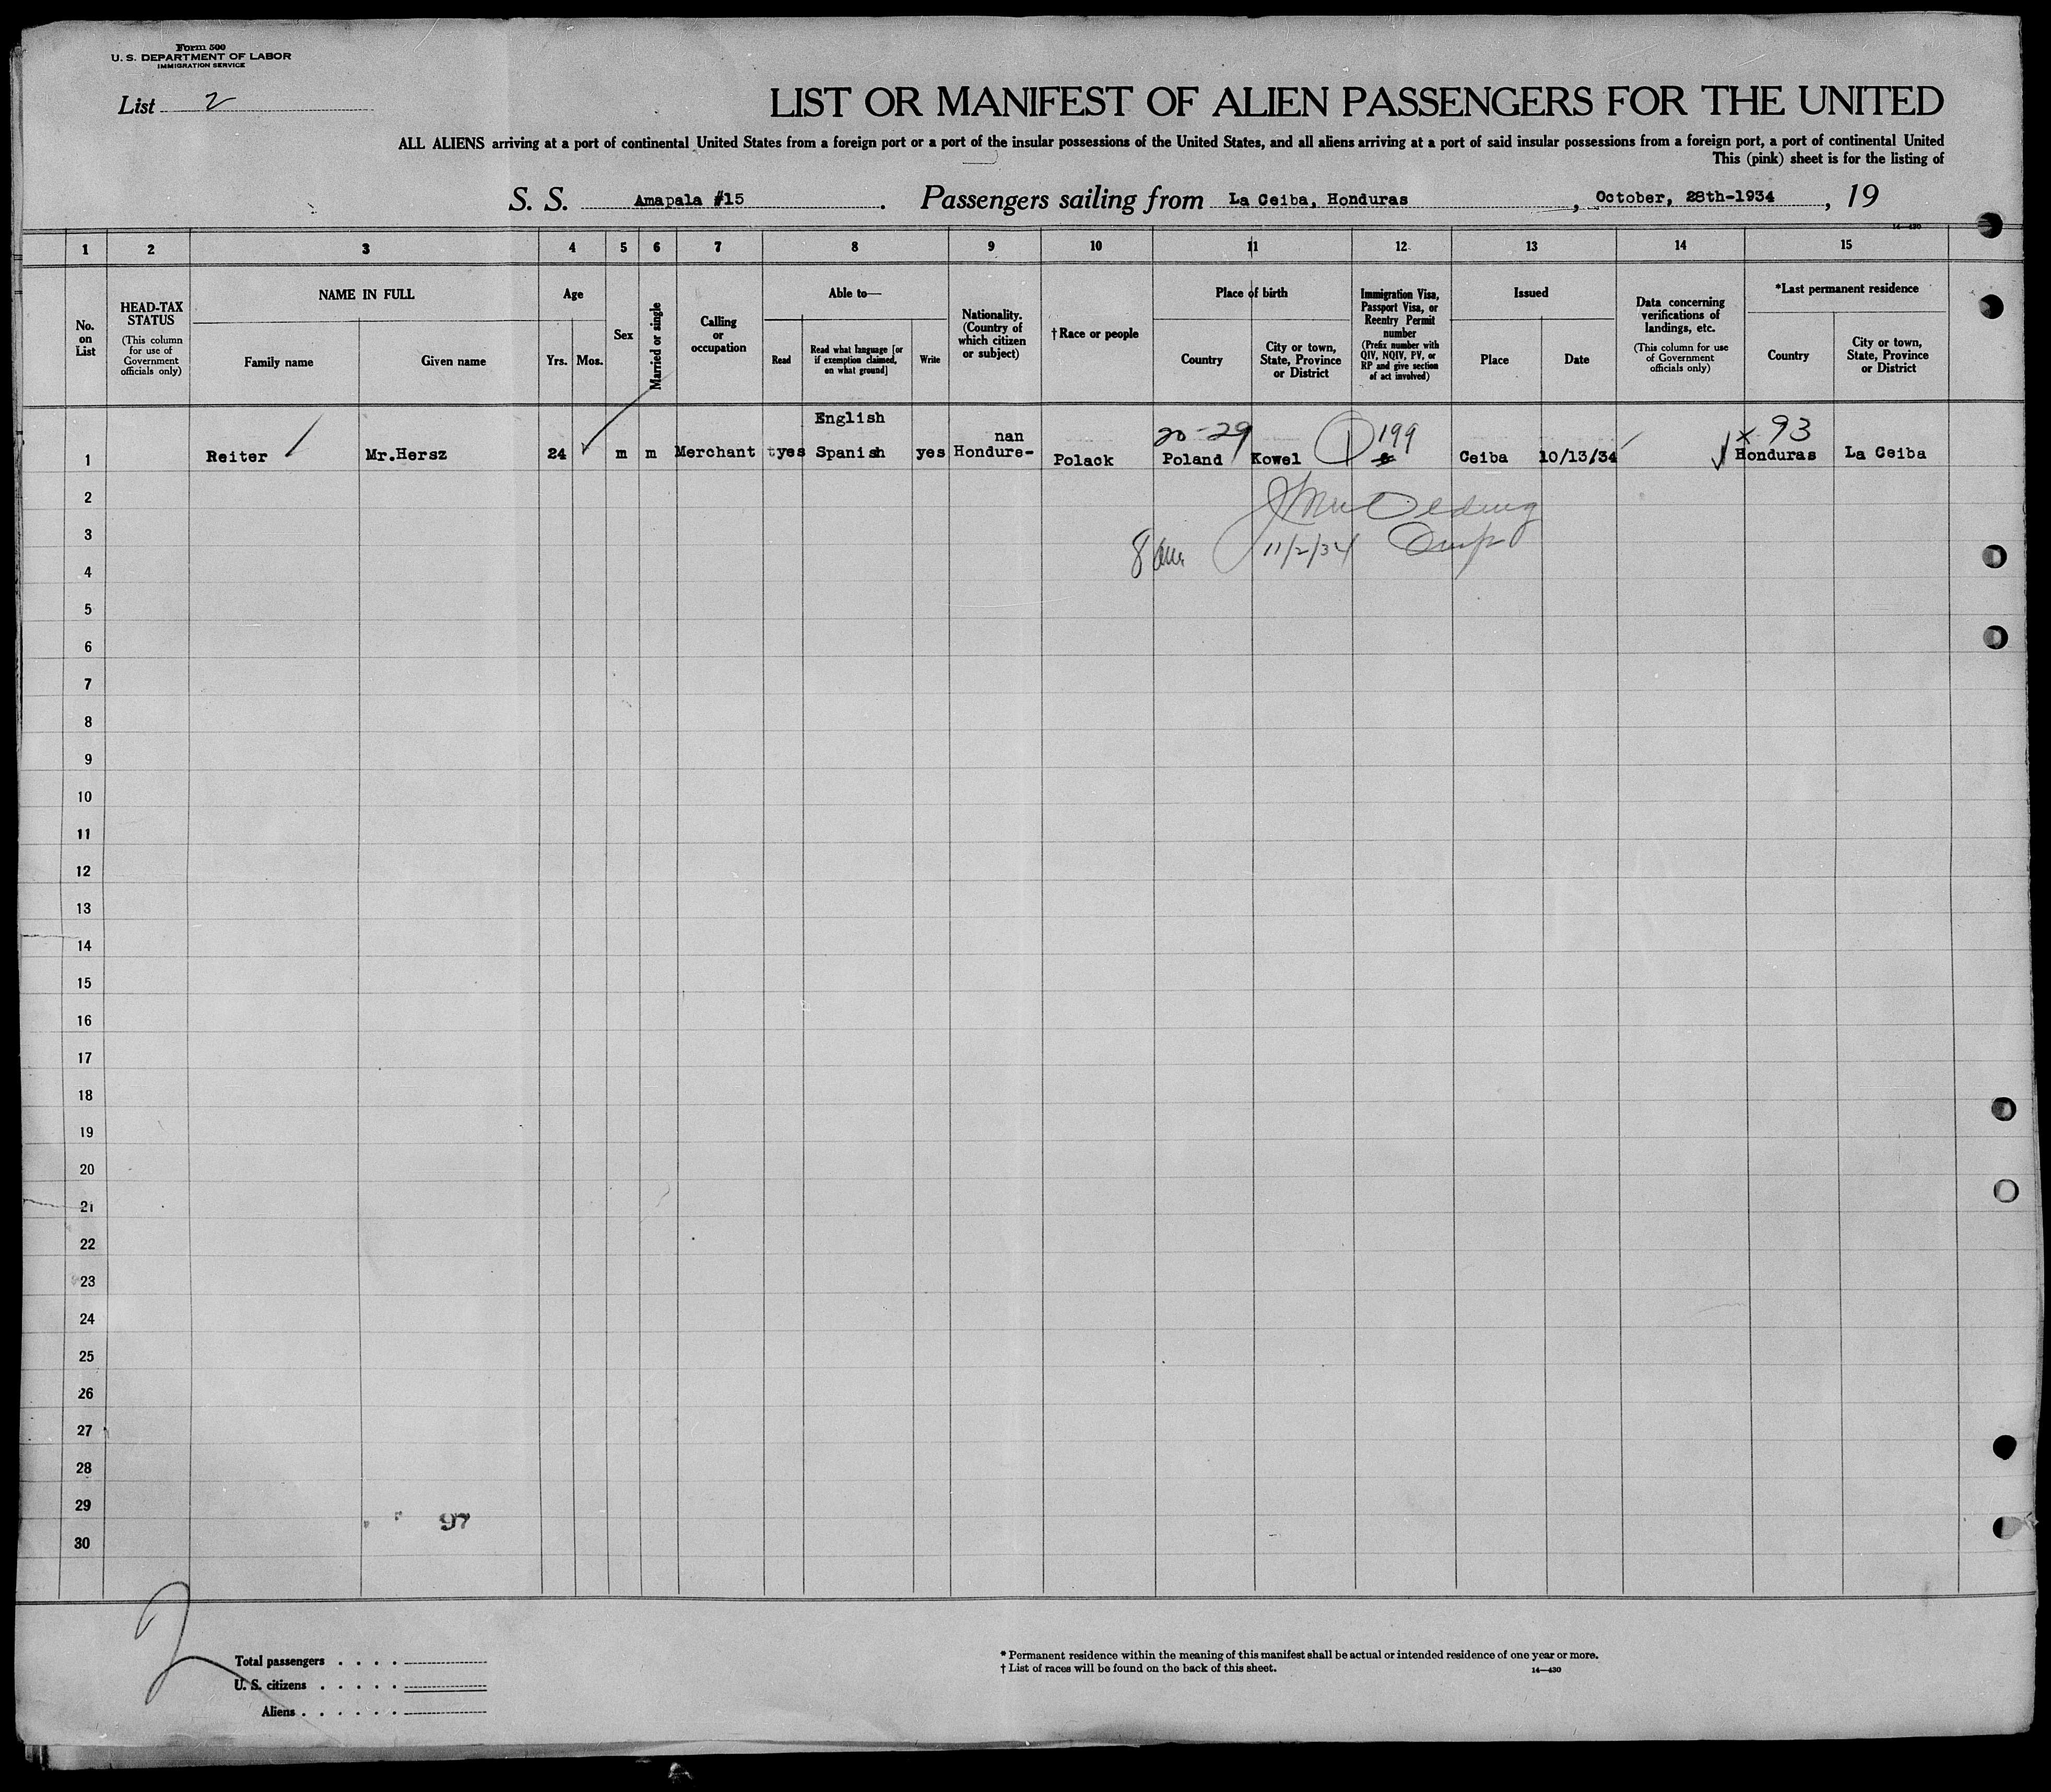 Form 500
U. S. DEPARTMENT OF LABOR
IMMIGRATION SERVICE
List 2
LIST OR MANIFEST OF ALIEN PASSENGERS FOR THE UNITED
ALL ALIENS arriving at a port of continental United States from a foreign port or a port of the insular possessions of the United States, and all aliens arriving at a port of said insular possessions from a foreign port, a port of continental United
This (pink) sheet is for the listing of
S. S. Amapala #15 . Passengers sailing from La Ceiba, Honduras , October, 28th-1934 , 19
14—430
1 2 3 4 5 6 7 8 9 10 11 12 13 14 15
No. on List
HEAD-TAX STATUS (This column for use of Government officials only)
NAME IN FULL
Family name
Given name
Age
Yrs.
Mos.
Sex
Married or single
Calling or occupation
Able to—
Read
Read what language [or if exemption claimed, on what ground]
Write
Nationality. (Country of which citizen or subject)
† Race or people
Place of birth
Country
City or town, State, Province or District
Immigration Visa, Passport Visa, or Reentry Permit number (Prefix number with QIV, NQIV, PV, or RP and give section of act involved)
Issued
Place
Date
Data concerning verifications of landings, etc. (This column for use of Government officials only)
*Last permanent residence
Country
City or town, State, Province or District
English
nan 20-29 199 x 93
1 Reiter Mr.Hersz 24 m m Merchant tyes Spanish yes Hondure- Polack Poland Kowel Ceiba 10/13/34 Honduras La Ceiba
2
3
8 am 11/2/34
4
5
6
7
8
9
10
11
12
13
14
15
16
17
18
19
20
21
22
23
24
25
26
27
28
29
97
30
2
Total passengers . . . .
U. S. citizens . . . . .
Aliens . . . . . .
* Permanent residence within the meaning of this manifest shall be actual or intended residence of one year or more.
† List of races will be found on the back of this sheet. 14—430